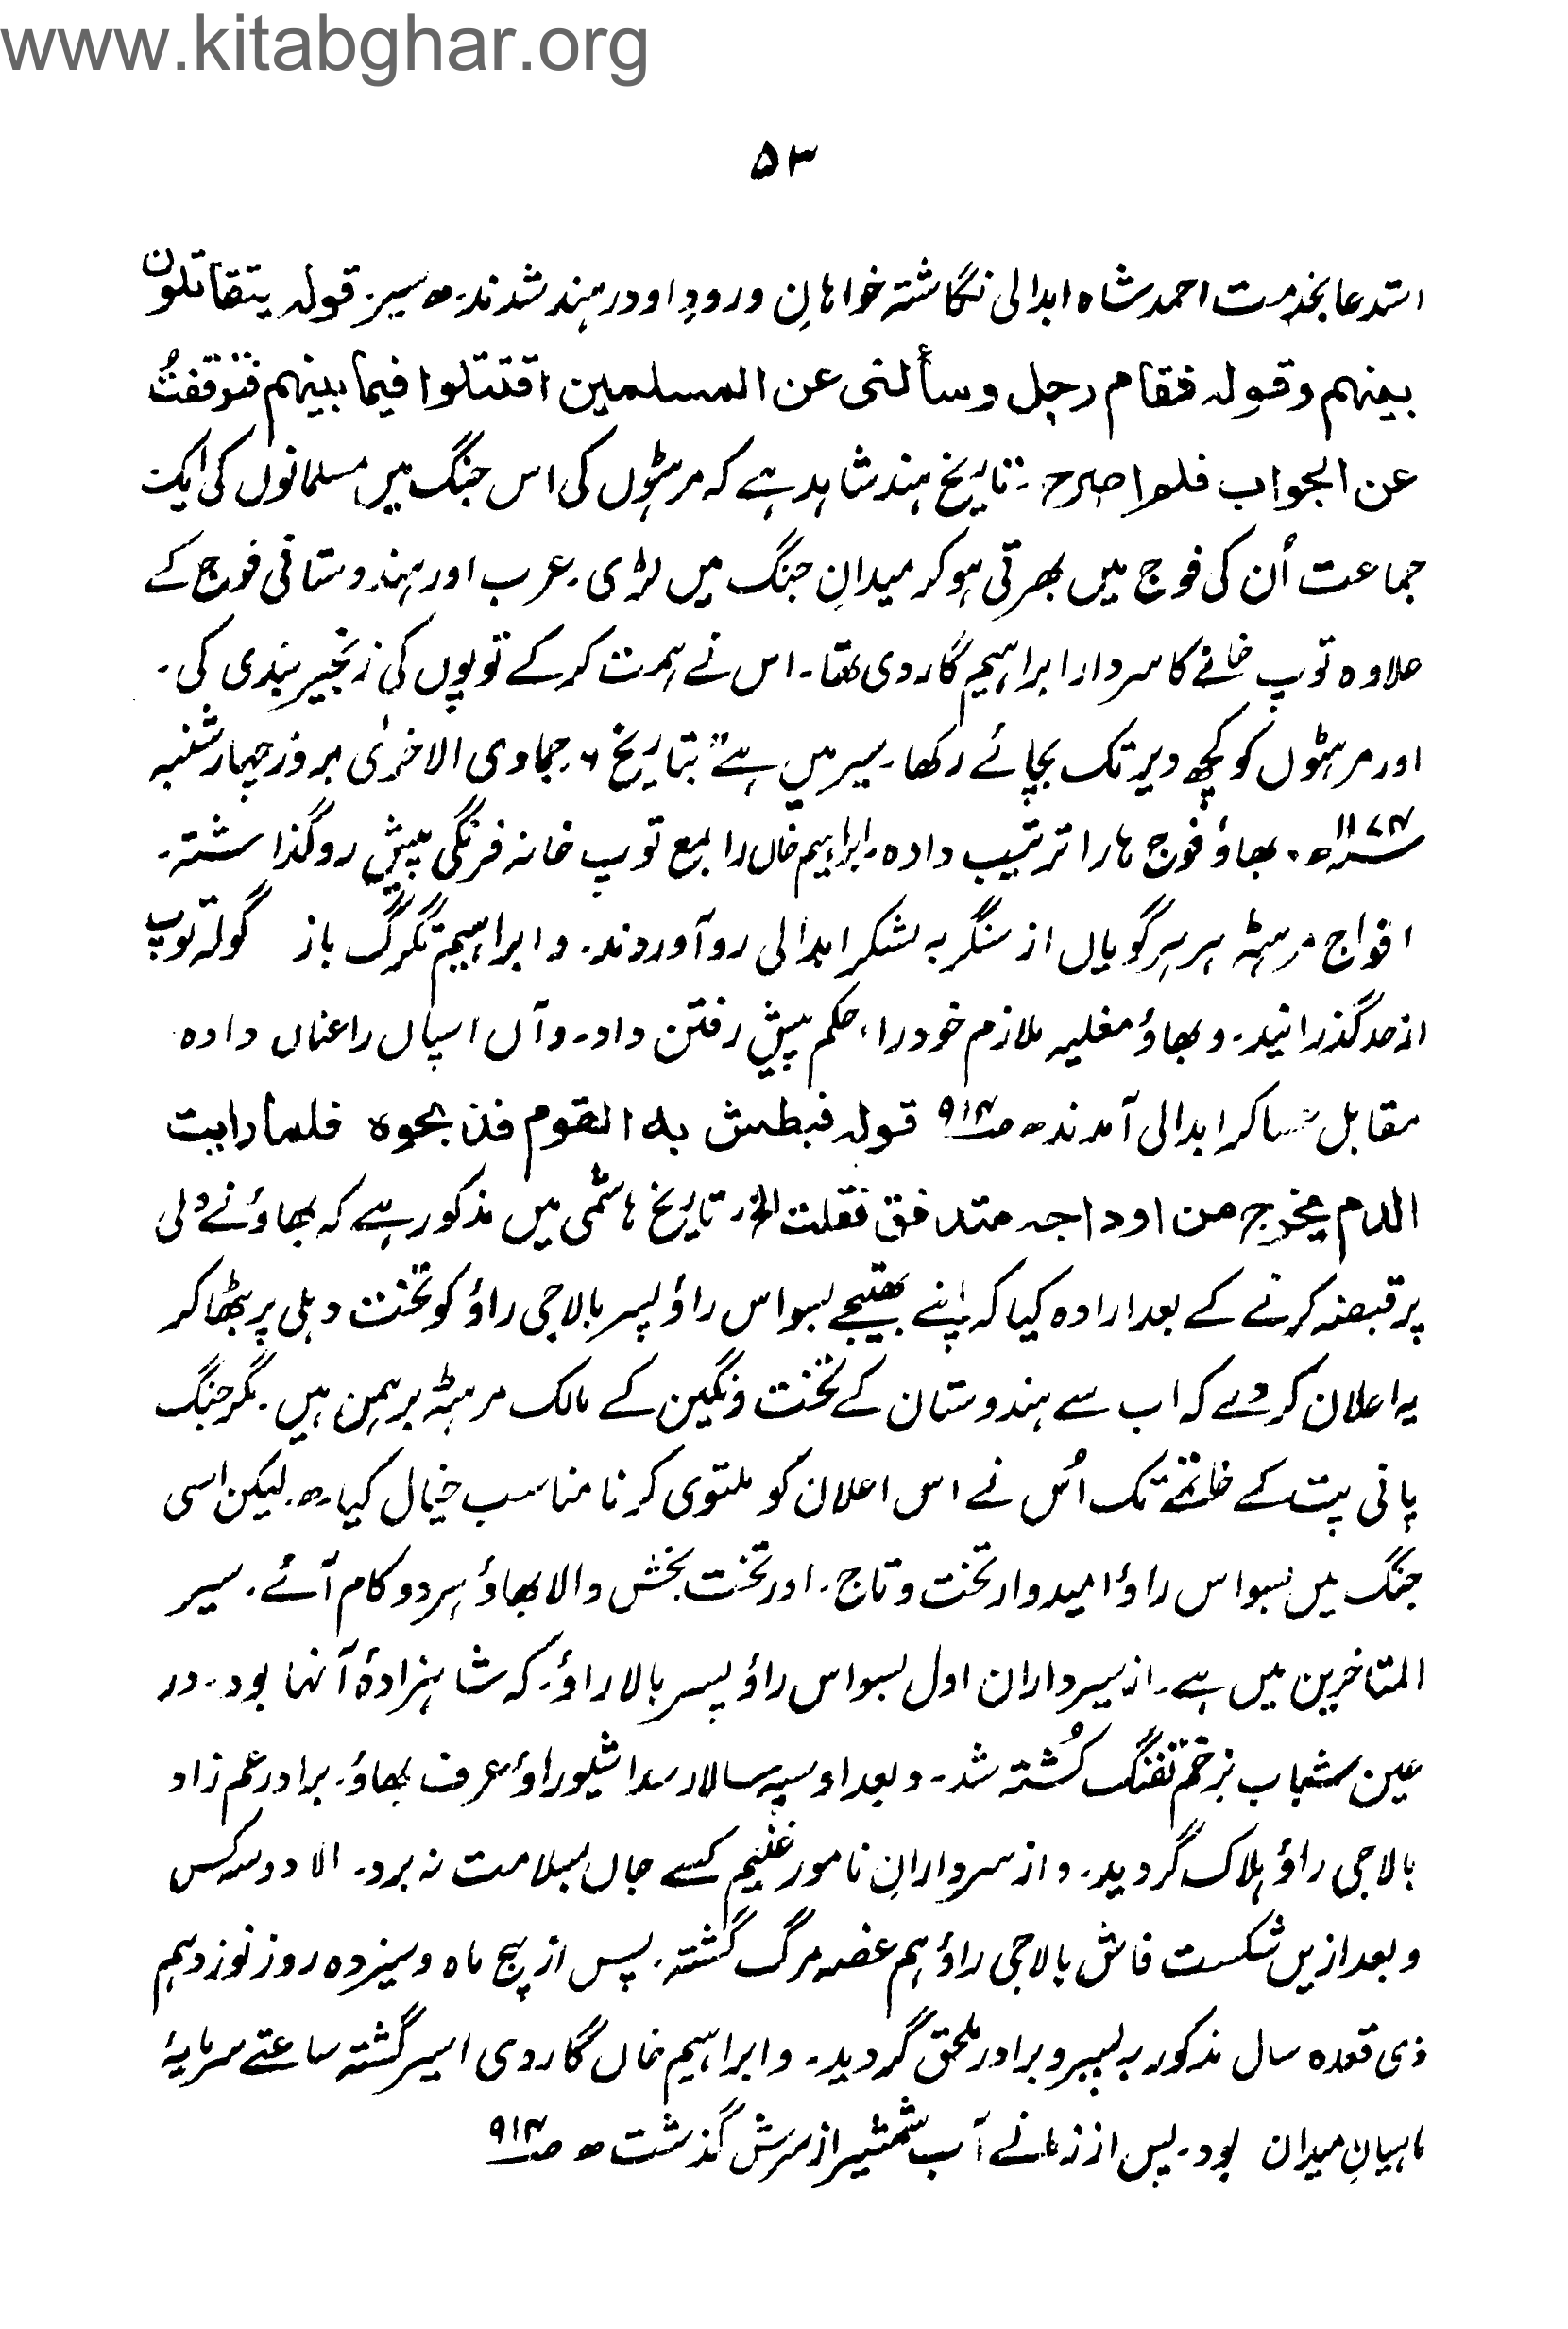 www.kitabghar.org
۵۳
استدعا بخدمت احمد شاہ ابدالی نگاشتہ خواہانِ ورودِ او در ہند شدند۔ھ سیر۔ قولہ یتقاتلون
بینہم وقولہ فقام رجل وسألنی عن المسلمین اقتتلوا فیما بینہم فتوقفتُ
عن الجواب فلم اصرح ۔ تاریخ ہند شاہد ہے کہ مرہٹوں کی اس جنگ میں مسلمانوں کی ایک
جماعت اُن کی فوج میں بھرتی ہو کر میدانِ جنگ میں لڑی ۔ عرب اور ہندوستانی فوج کے
علاوہ توپ خانے کا سردار ابراہیم گاردی تھا ۔ اس نے ہمت کر کے توپوں کی زنجیر بندی کی ۔
اور مرہٹوں کو کچھ دیر تک بچائے رکھا ۔ سیر میں ہے ” بتاریخ ۶ ۔ جمادی الاخریٰ بروز چہار شنبہ
۱۱۷۴ھ ۔ بھاؤ فوج ہا را ترتیب دادہ ۔ ابراہیم خاں را بمع توپ خانہ فرنگی پیش رو گذاشتہ ۔
افواج مرہٹہ ہر ہر گویاں از سنگر بہ لشکر ابدالی رو آوردند ۔ و ابراہیم تگرگ باز گولہ توپ
از حد گذرانید ۔ و بھاؤ مغلیہ ملازم خود را ، حکم پیش رفتن داد ۔ و آں اسپاں را عناں دادہ
مقابل عساکر ابدالی آمدند ھ ص۹۱۴ قولہ فبطش بہ القوم فذبحوہ فلما رایت
الدم یخرج من اوداجہ متدفق فقلت الخ ۔ تاریخ ہاشمی میں مذکور ہے کہ بھاؤ نے دلی
پر قبضہ کرنے کے بعد ارادہ کیا کہ اپنے بھتیجے بسواس راؤ پسر بالاجی راؤ کو تخت دہلی پر بٹھا کر
یہ اعلان کر دے کہ اب سے ہندوستان کے تخت و نگین کے مالک مرہٹہ برہمن ہیں ۔ مگر جنگ
پانی پت کے خاتمے تک اُس نے اس اعلان کو ملتوی کرنا مناسب خیال کیا ۔ھ ۔ لیکن اسی
جنگ میں بسواس راؤ امیدوار تخت و تاج ۔ اور تخت بخش والا بھاؤ ہر دو کام آئے ۔ سیر
المتاخرین میں ہے ۔ از سرداران اول بسواس راؤ پسر بالا راؤ ۔ کہ شاہزادۂ آنہا بود ۔ در
عین شباب بزخم تفنگ کُشتہ شد ۔ و بعد او سپہ سالار سداشیو راؤ عرف بھاؤ ۔ برادر عم زاد
بالاجی راؤ ہلاک گردید ۔ و از سردارانِ نامور غنیم کسے جاں بسلامت نہ برد ۔ الا دو سہ کس
و بعد ازیں شکست فاش بالاجی راؤ ہم غصہ مرگ گشتہ ۔ پس از پنج ماہ و سیزدہ روز نوزدہم
ذی قعدہ سال مذکور بہ پسر و برادر ملحق گردید ۔ و ابراہیم خاں گاردی اسیر گشتہ ساعتے سرمایۂ
ماہیانِ میدان بود ۔ پس از زمانے آب شمشیر از سرش گذشت ھ ص۹۱۴